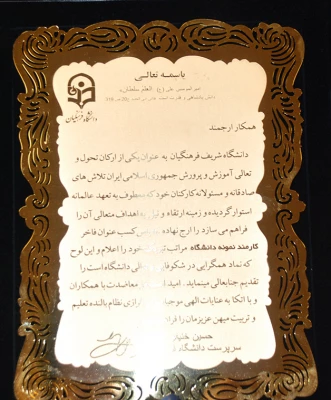 باسمه تعالی
امیرالمومنین علی (ع): العلم سلطان
دانشگاه فرهنگیان
همکار ارجمند
دانشگاه شریف فرهنگیان به عنوان یکی از ارکان تحول و
تعالی آموزش و پرورش جمهوری اسلامی ایران تلاش های
صادقانه و مسئولانه کارکنان خود که معطوف به تعهد عالمانه
استوار گردیده و زمینه ارتقاء و نیل به اهداف متعالی آن را
فراهم می سازد را ارج نهاده کسب عنوان فاخر
کارمند نمونه دانشگاه مراتب خود را اعلام و این لوح
که نماد همگرایی در شکوفا دانشگاه است را
تقدیم جنابعالی مینماید. امید معاضدت با همکاران
و با اتکا به عنایات الهی نظام بالنده تعلیم
و تربیت میهن عزیزمان را
حسین
سرپرست دانشگاه